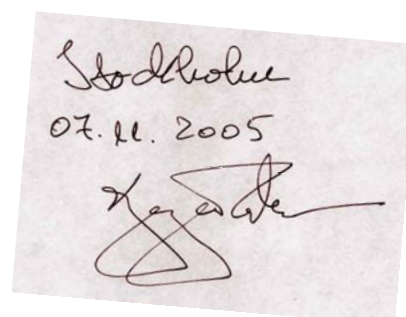 Stockholm
07.11.2005